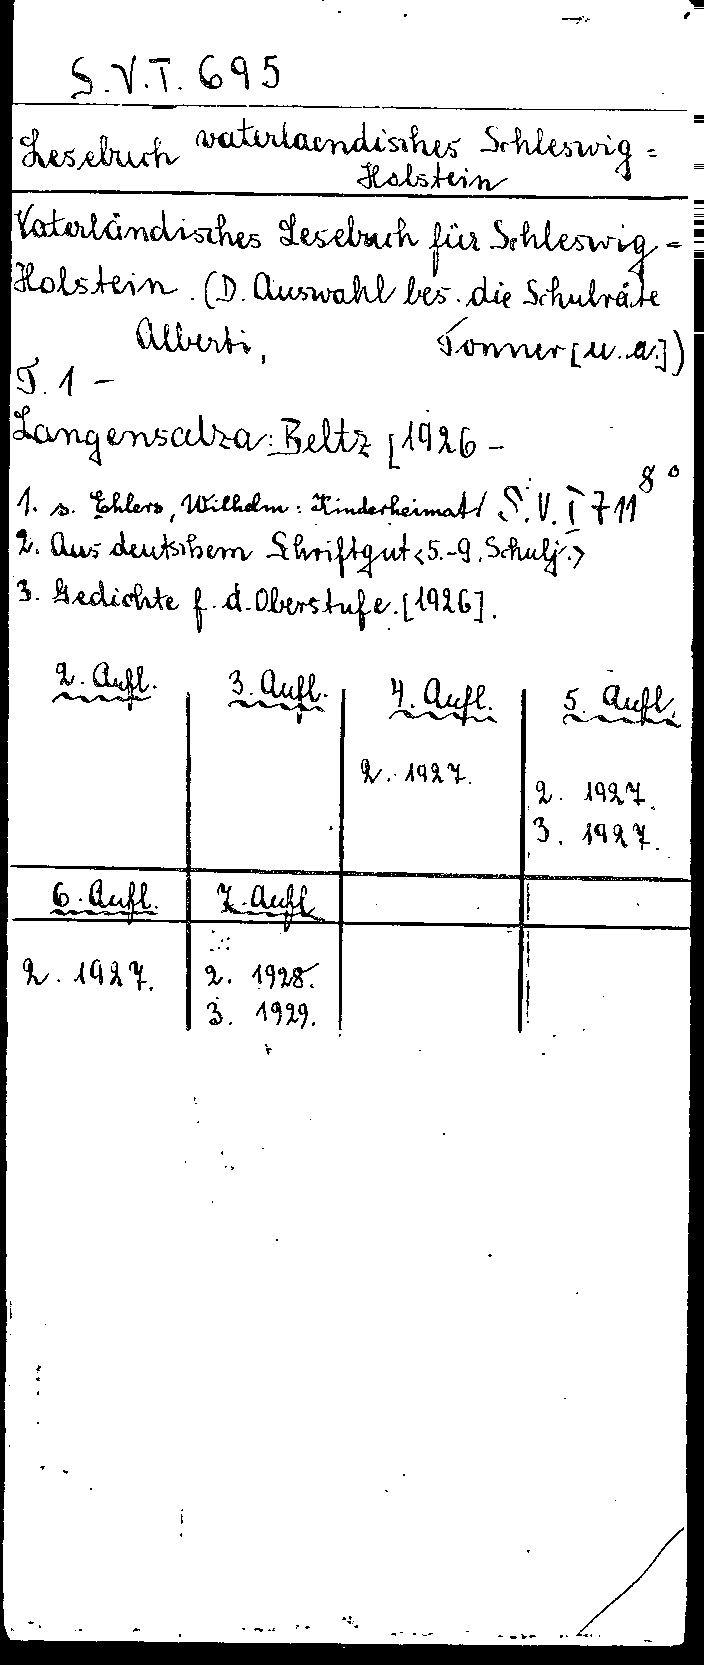 S.V.T. 695
Lesebuch vaterlaendisches Schleswig=
Holstein
Vaterländisches Lesebuch für Schleswig=
Holstein. (D. Auswahl bes. die Schulräte
Alberti, Tonner [u. a.])
T. 1 –
Langensalza: Beltz [1926 –
8°
1. s. Ehlers, Wilhelm: Kinderheimat/ S.V.T 711
2. Aus deutschem Schriftgut <5.-9. Schulj.>
3. Gedichte f. d. Oberstufe. [1926].
2. Aufl. 3. Aufl. 4. Aufl. 5. Aufl.
2. 1927. 2. 1927.
3. 1927.
6. Aufl. 7. Aufl
2. 1927. 2. 1928.
3. 1929.